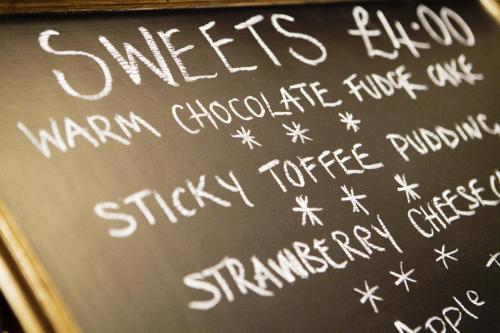 SWEETS £4.00
WARM CHOCOLATE FUDGE CAKE
* * *
STICKY TOFFEE PUDDING
* * *
STRAWBERRY CHEESEC
* * *
Apple